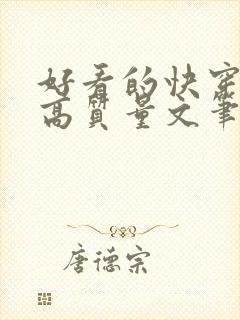 好看的快穿
高质量文笔
唐德宗